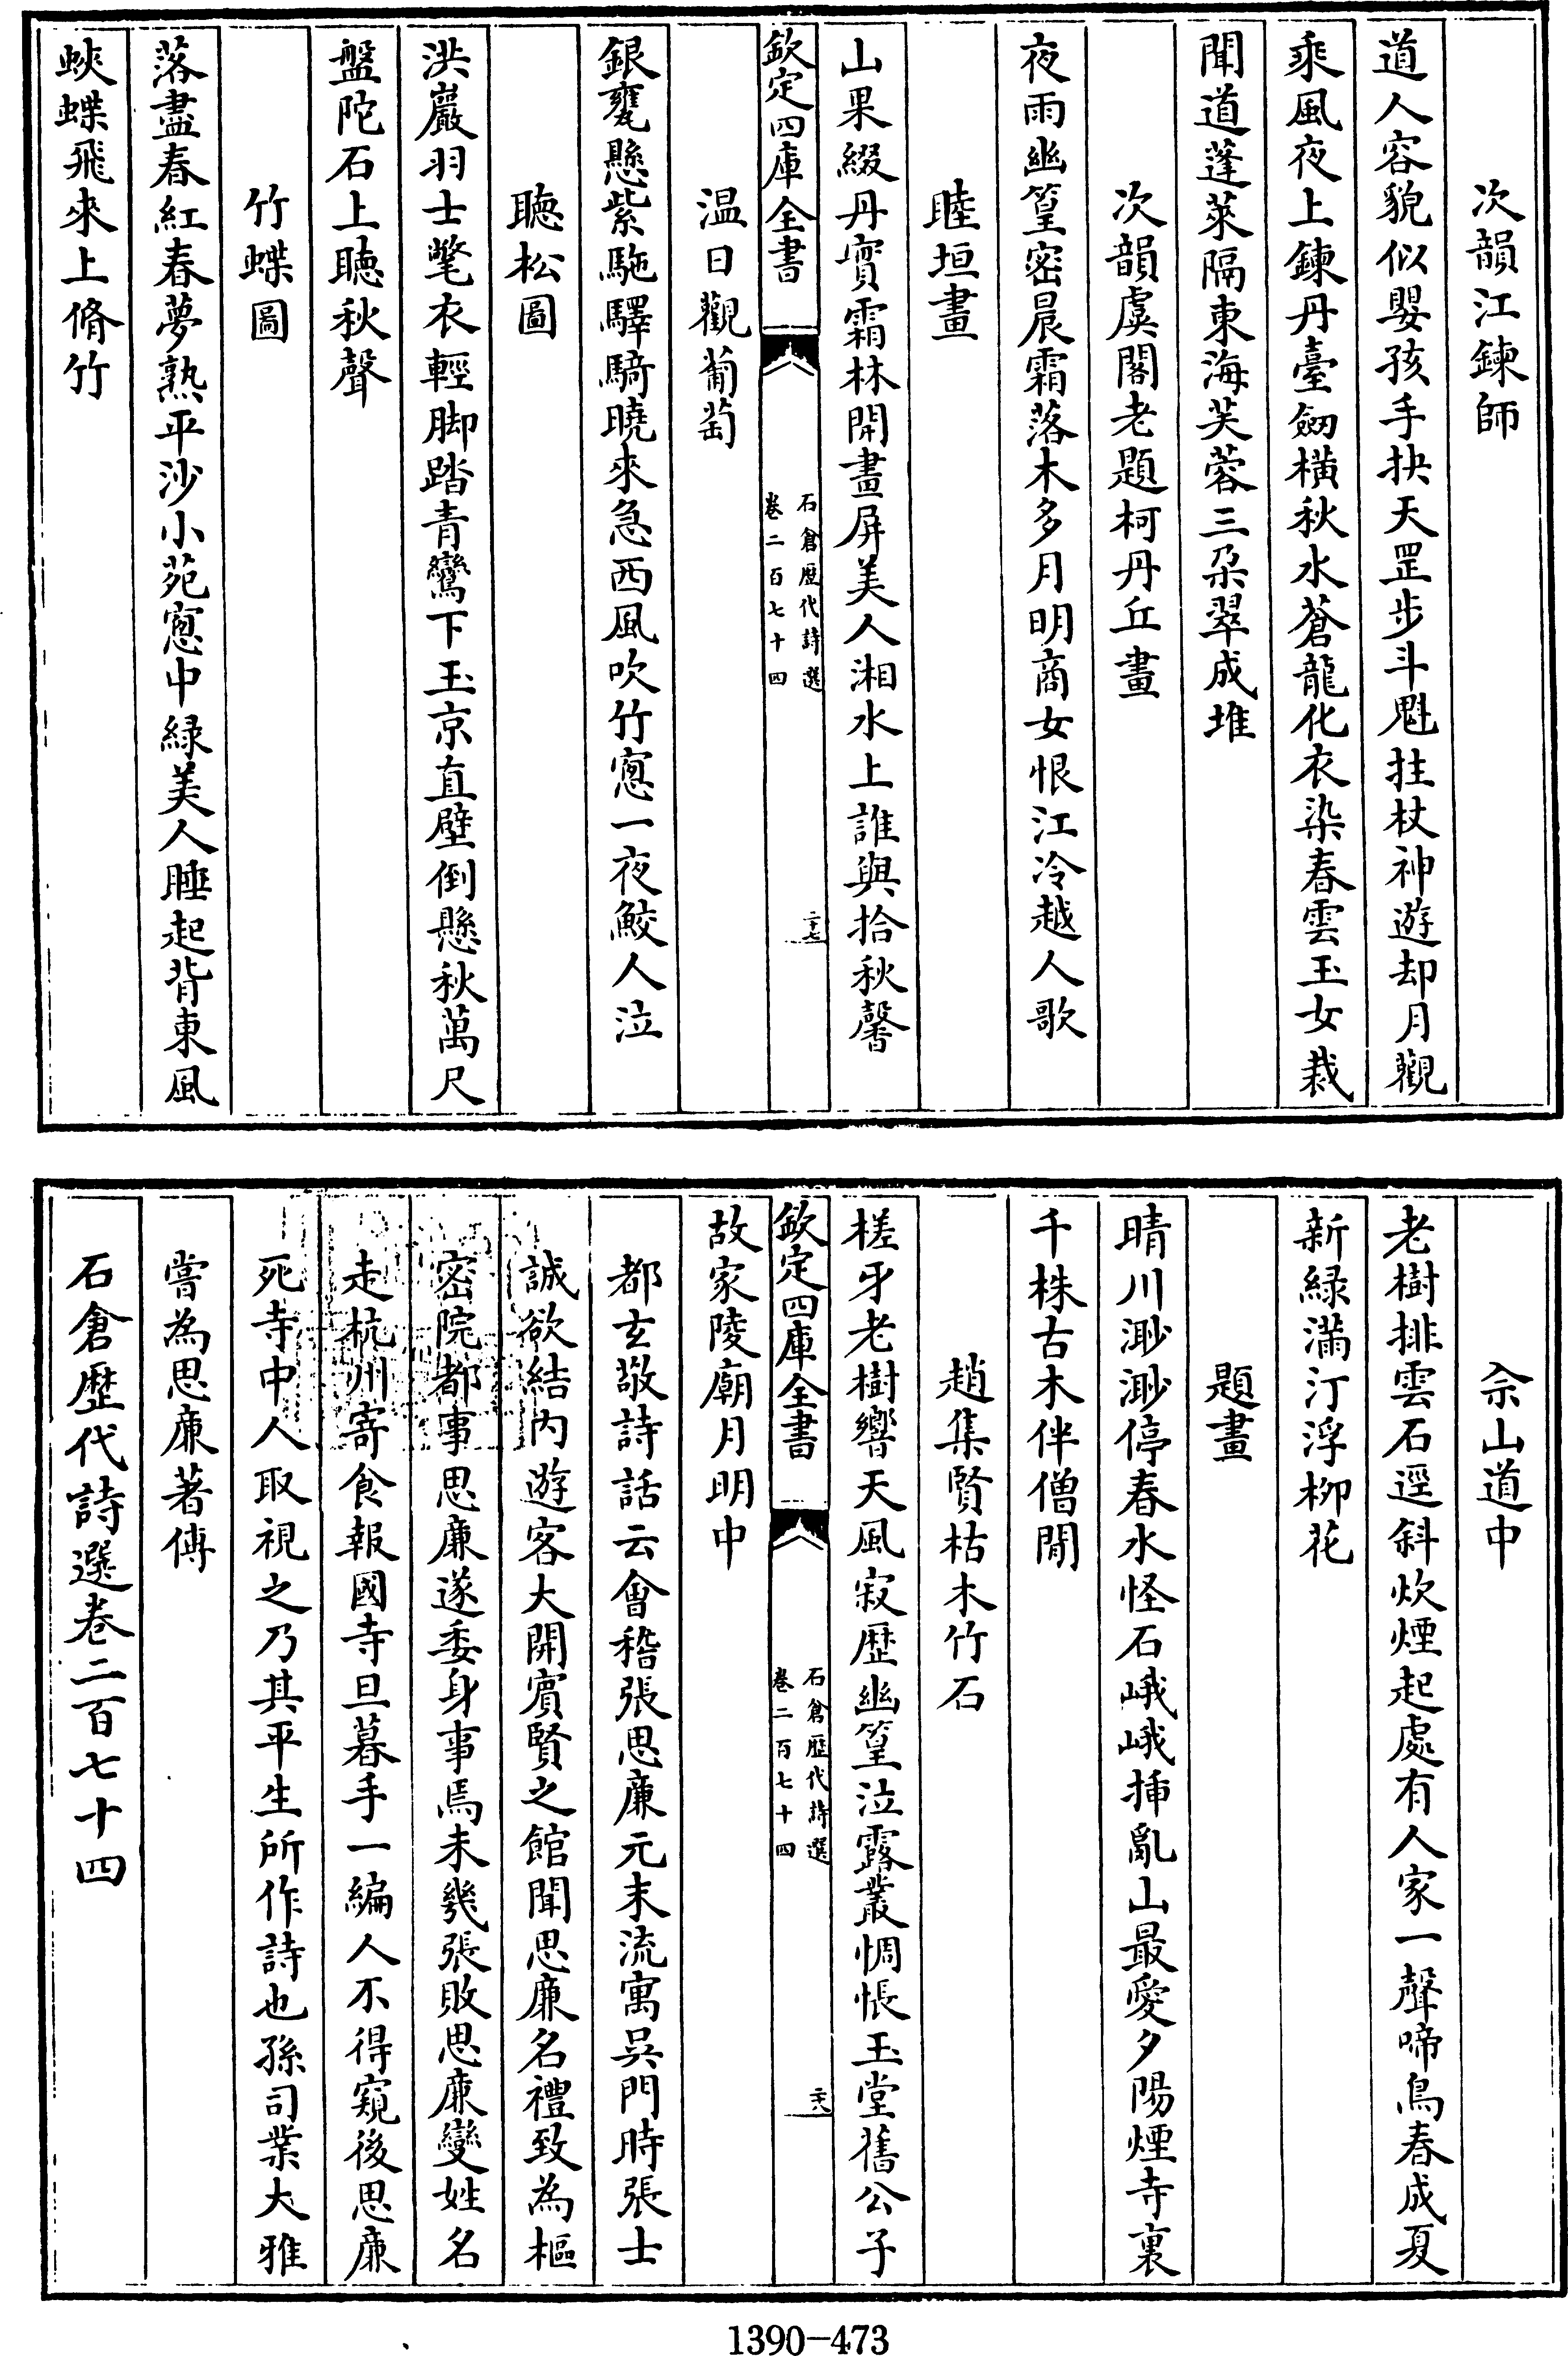 次韻江鍊師
道人容貌似嬰孩手抉天罡步斗魁拄杖神遊却月觀
乘風夜上鍊丹臺劒橫秋水蒼龍化衣染春雲玉女裁
聞道蓬萊隔東海芙蓉三朶翠成堆
次韻虞閣老題柯丹丘畫
夜雨幽篁密晨霜落木多月明商女恨江冷越人歌
睦垣畫
山果綴丹實霜林開畫屏美人湘水上誰與拾秋馨
欽定四庫全書
石倉歷代詩選
卷二百七十四
二十七
温日觀葡萄
銀甕懸紫駞驛騎曉來急西風吹竹窻一夜鮫人泣
聽松圖
洪巖羽士氅衣輕脚踏青鸞下玉京直壁倒懸秋萬尺
盤陀石上聽秋聲
竹蝶圖
落盡春紅春夢熟平沙小苑窻中緑美人睡起背東風
蛺蝶飛來上脩竹
佘山道中
老樹排雲石逕斜炊煙起處有人家一聲啼鳥春成夏
新緑滿汀浮柳花
題畫
晴川渺渺停春水怪石峨峨揷亂山最愛夕陽煙寺裏
千株古木伴僧閒
趙集賢枯木竹石
槎牙老樹響天風寂歷幽篁泣露叢惆悵玉堂舊公子
欽定四庫全書
石倉歷代詩選
卷二百七十四
二十八
故家陵廟月明中
都玄敬詩話云會稽張思廉元末流寓吳門時張士
誠欲結内遊客大開賓賢之館聞思廉名禮致為樞
密院都事思廉遂委身事焉未幾張敗思廉變姓名
走杭州寄食報國寺旦暮手一編人不得窺後思廉
死寺中人取視之乃其平生所作詩也孫司業大雅
嘗為思廉著傳
石倉歷代詩選卷二百七十四
1390-473